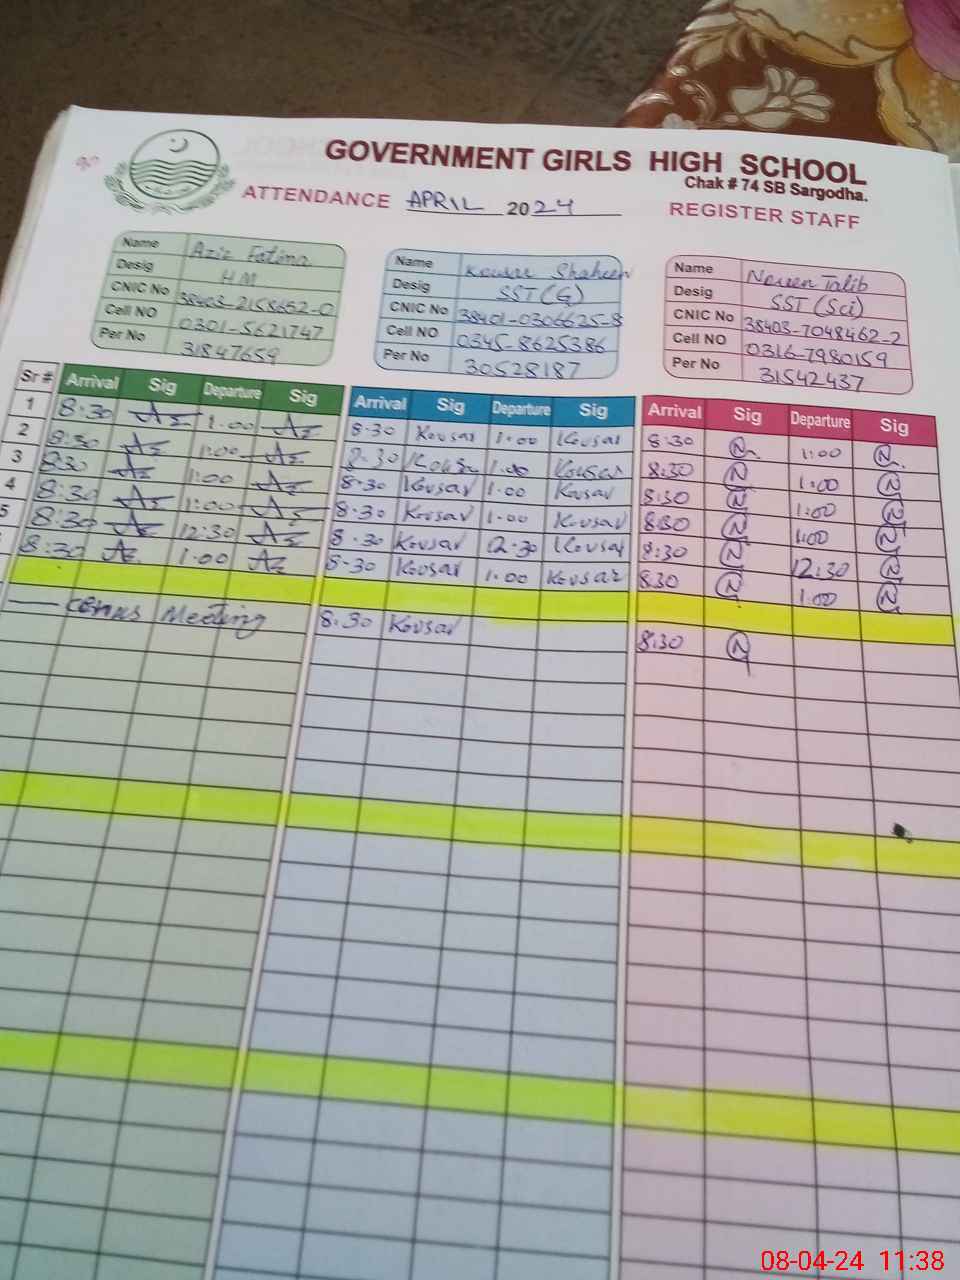 GOVERNMENT GIRLS HIGH SCHOOL
Chak # 74 SB Sargodha.
ATTENDANCE APRIL 2024 REGISTER STAFF
Name Aziz Fatima
Desig HM
CNIC No 38403-2158652-0
Cell NO 0301-5621747
Per No 31847659
Name Kousar Shaheen
Desig SST(G)
CNIC No 38401-0306625-8
Cell NO 0345-8625386
Per No 30528187
Name Noreen Talib
Desig SST(Sci)
CNIC No 38403-7048462-2
Cell NO 0316-7980159
Per No 31542437
Sr # Arrival Sig Departure Sig Arrival Sig Departure Sig Arrival Sig Departure Sig
1 8:30 Az 1:00 Az 8:30 Kousar 1:00 Kousar 8:30 N 1:00 N
2 8:30 Az 1:00 Az 8:30 Kousar 1:00 Kousar 8:30 N 1:00 N
3 830 Az 1:00 Az 8:30 Kousar 1:00 Kousar 8:30 N 1:00 N
4 8:30 Az 1:00 Az 8:30 Kousar 1:00 Kousar 8:30 N 1:00 N
5 8:30 Az 12:30 Az 8:30 Kousar 12:30 Kousar 8:30 N 12:30 N
8:30 Az 1:00 Az 8:30 Kousar 1:00 Kousar 830 N 1:00 N
Meeting 8:30 Kousar 8:30 N
08-04-24 11:38